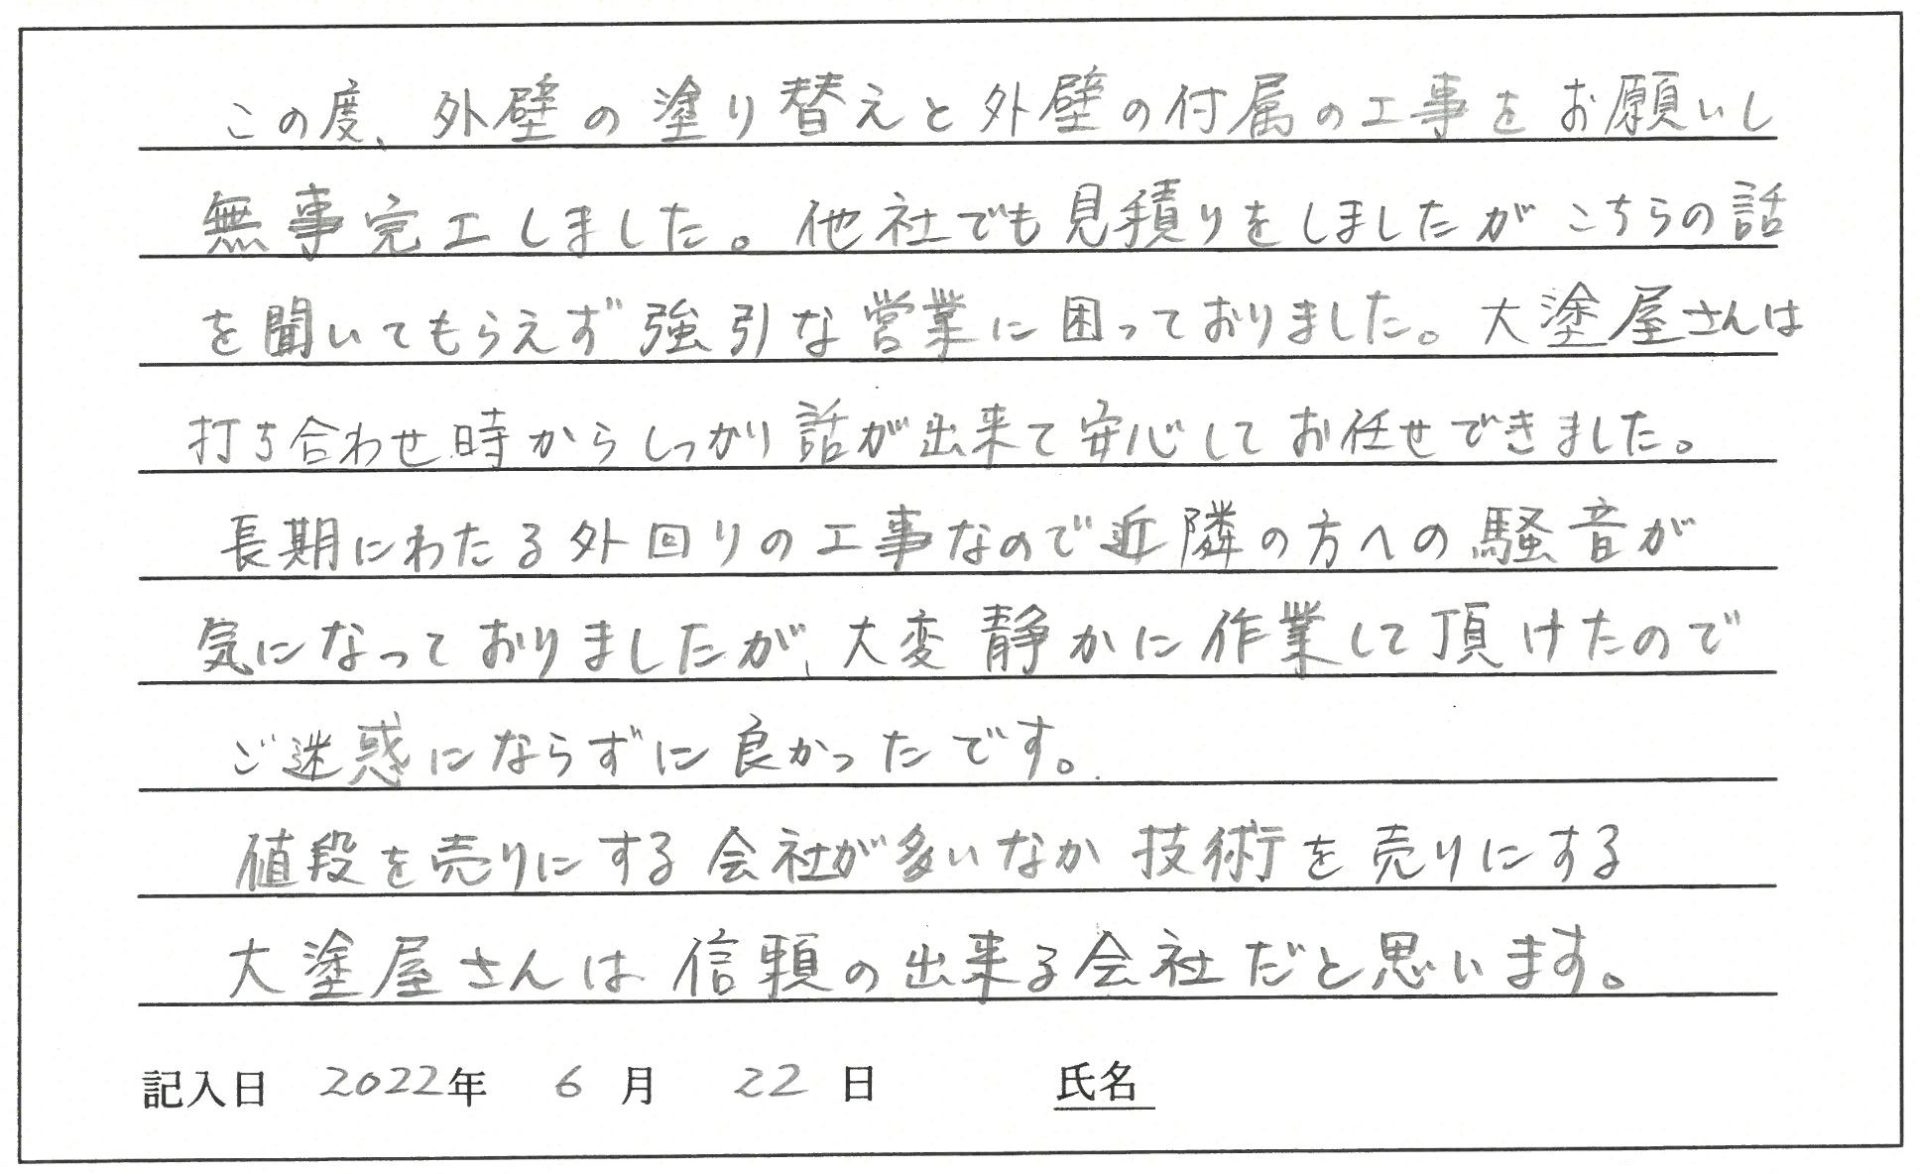 この度、外壁の塗り替えと外壁の付属の工事をお願いし
無事完工しました。他社でも見積りをしましたがこちらの話
を聞いてもらえず強引な営業に困っておりました。大塗屋さんは
打ち合わせ時からしっかり話が出来て安心してお任せできました。
長期にわたる外回りの工事なので近隣の方への騒音が
気になっておりましたが、大変静かに作業して頂けたので
ご迷惑にならずに良かったです。
値段を売りにする会社が多いなか技術を売りにする
大塗屋さんは信頼の出来る会社だと思います。
記入日 2022年 6月 22日 氏名